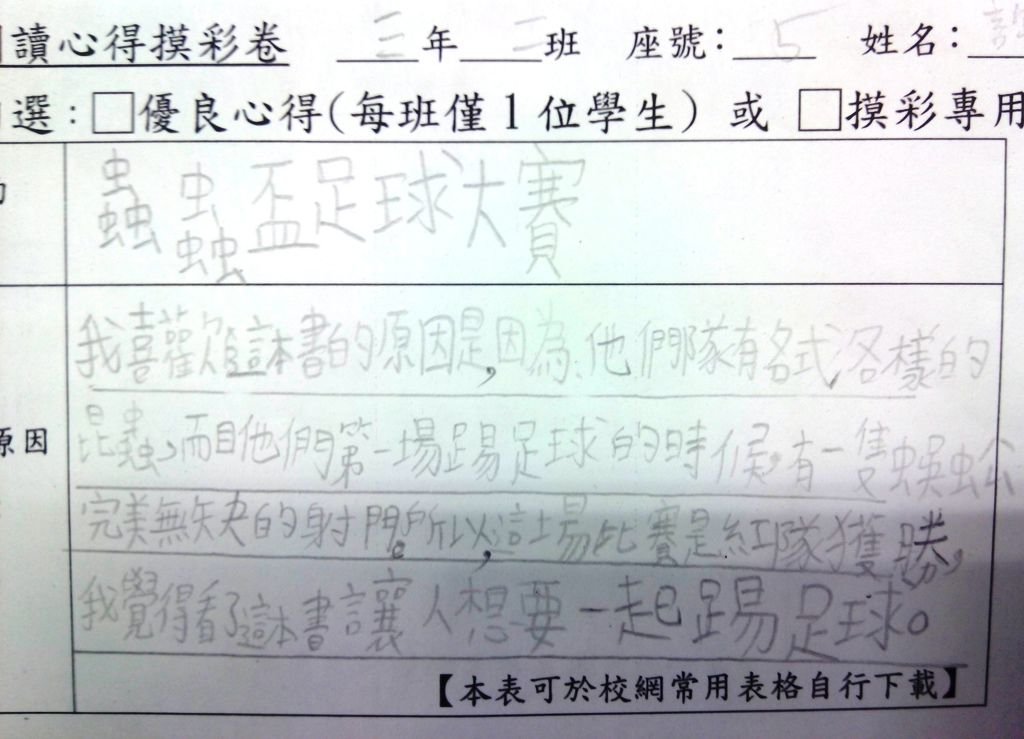 讀心得摸彩卷 三年二班 座號：5 姓名：
選：□優良心得(每班僅1位學生) 或 □摸彩專用
蟲蟲盃足球大賽
我喜歡這本書的原因是，因為他們隊有各式各樣的
原因
昆蟲，而且他們第一場踢足球的時候，有一隻蜈蚣
完美無缺的射門。所以，這場比賽是紅隊獲勝，
我覺得看了這本書讓人想要一起踢足球。
【本表可於校網常用表格自行下載】